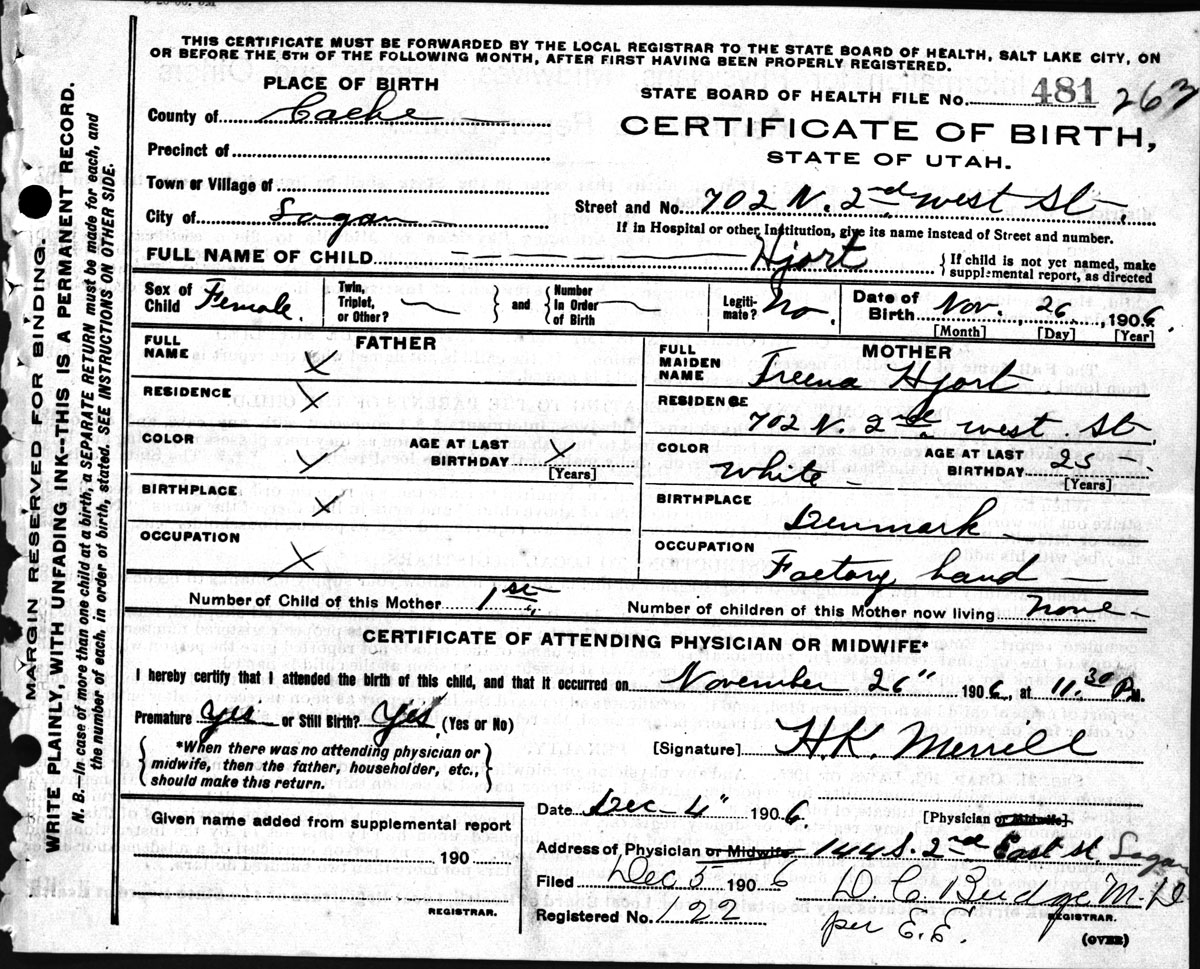 THIS CERTIFICATE MUST BE FORWARDED BY THE LOCAL REGISTRAR TO THE STATE BOARD OF HEALTH, SALT LAKE CITY, ON
OR BEFORE THE 5TH OF THE FOLLOWING MONTH, AFTER FIRST HAVING BEEN PROPERLY REGISTERED.
PLACE OF BIRTH
STATE BOARD OF HEALTH FILE NO. 481 263
County of Cache
CERTIFICATE OF BIRTH,
STATE OF UTAH.
Precinct of
Town or Village of
Street and No. 702 N. 2nd west St
City of Logan
If in Hospital or other Institution, give its name instead of Street and number.
FULL NAME OF CHILD Hjort
{If child is not yet named, make
supplemental report, as directed
Sex of Child Female.
Twin, Triplet, or Other?
} and {
Number in Order of Birth
Legiti-mate? No.
Date of Birth Nov. 26, 1906.
[Month] [Day] [Year]
FATHER
FULL NAME X
RESIDENCE X
COLOR X
AGE AT LAST BIRTHDAY X
[Years]
BIRTHPLACE X
OCCUPATION X
MOTHER
FULL MAIDEN NAME Freena Hjort
RESIDENCE
702 N. 2nd west St.
COLOR White
AGE AT LAST BIRTHDAY 25
[Years]
BIRTHPLACE
Denmark
OCCUPATION
Factory hand
Number of Child of this Mother 1st
Number of children of this Mother now living none
CERTIFICATE OF ATTENDING PHYSICIAN OR MIDWIFE*
I hereby certify that I attended the birth of this child, and that it occurred on November 26" 1906, at 11.30 P.M.
Premature yes or Still Birth? Yes (Yes or No)
{*When there was no attending physician or
midwife, then the father, householder, etc.,
should make this return.}
[Signature] H.K. Merrill
Date Dec - 4" 1906
[Physician or Midwife]
Address of Physician or Midwife 144 S. 2nd East St. Logan
Given name added from supplemental report
190
REGISTRAR.
Filed Dec 5 1906
D. C. Budge M.D
REGISTRAR.
Registered No. 122
per E.E.
(OVER)
MARGIN RESERVED FOR BINDING
WRITE PLAINLY, WITH UNFADING INK--THIS IS A PERMANENT RECORD.
N. B.—In case of more than one child at a birth, a SEPARATE RETURN must be made for each, and
the number of each, in order of birth, stated. SEE INSTRUCTIONS ON OTHER SIDE.